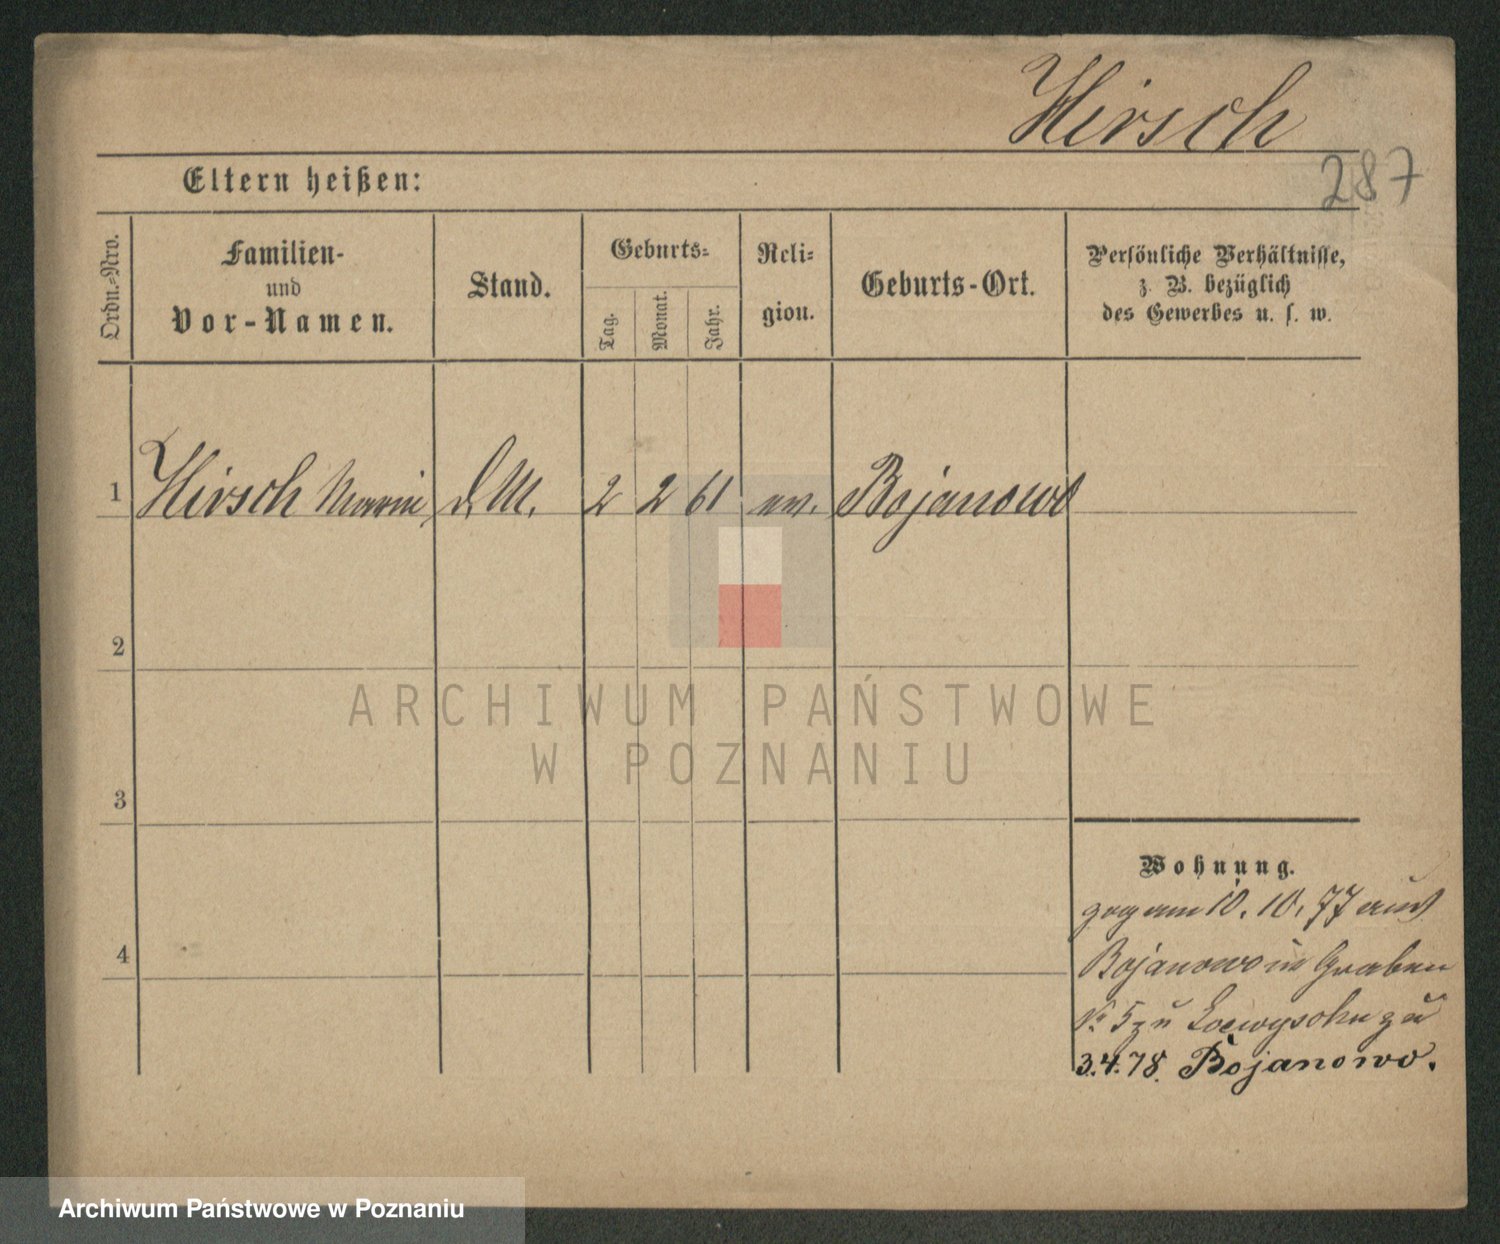 Hirsch
287
Eltern heißen:
Ordn.-Nro.
Familien-
und
Vor-Namen.
Stand.
Geburts-
Tag.
Monat.
Jahr.
Reli-
gion.
Geburts-Ort.
Persönliche Verhältnisse,
z. B. bezüglich
des Gewerbes u. s. w.
1 Hirsch d. M. 2 2 61 ev. Bojanowo
2
ARCHIWUM PAŃSTWOWE
W POZNANIU
3
Wohnung.
zog am 10. 10. 77 aus
4
Bojanowo in Graben
No 5 zu zu
3.4.78. Bojanowo.
Archiwum Państwowe w Poznaniu